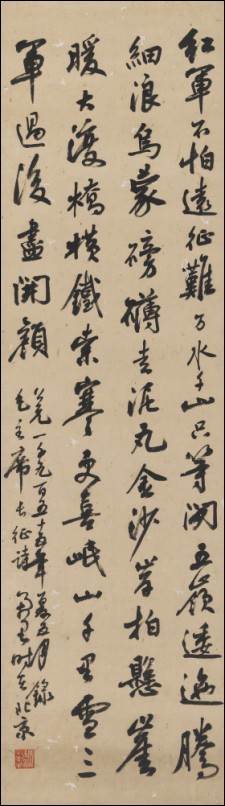 紅軍不怕遠征難万水千山只等閑五嶺逶迤騰
細浪烏蒙磅礴走泥丸金沙岸拍懸崖
暖大渡橋橫鐵索寒更喜岷山千里雪三
軍過後盡開顏
公元一千九百五十年五月錄
毛主席長征詩時在北京